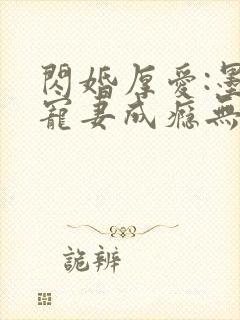 閃婚厚愛:墨
寵妻成癮無
詭辨